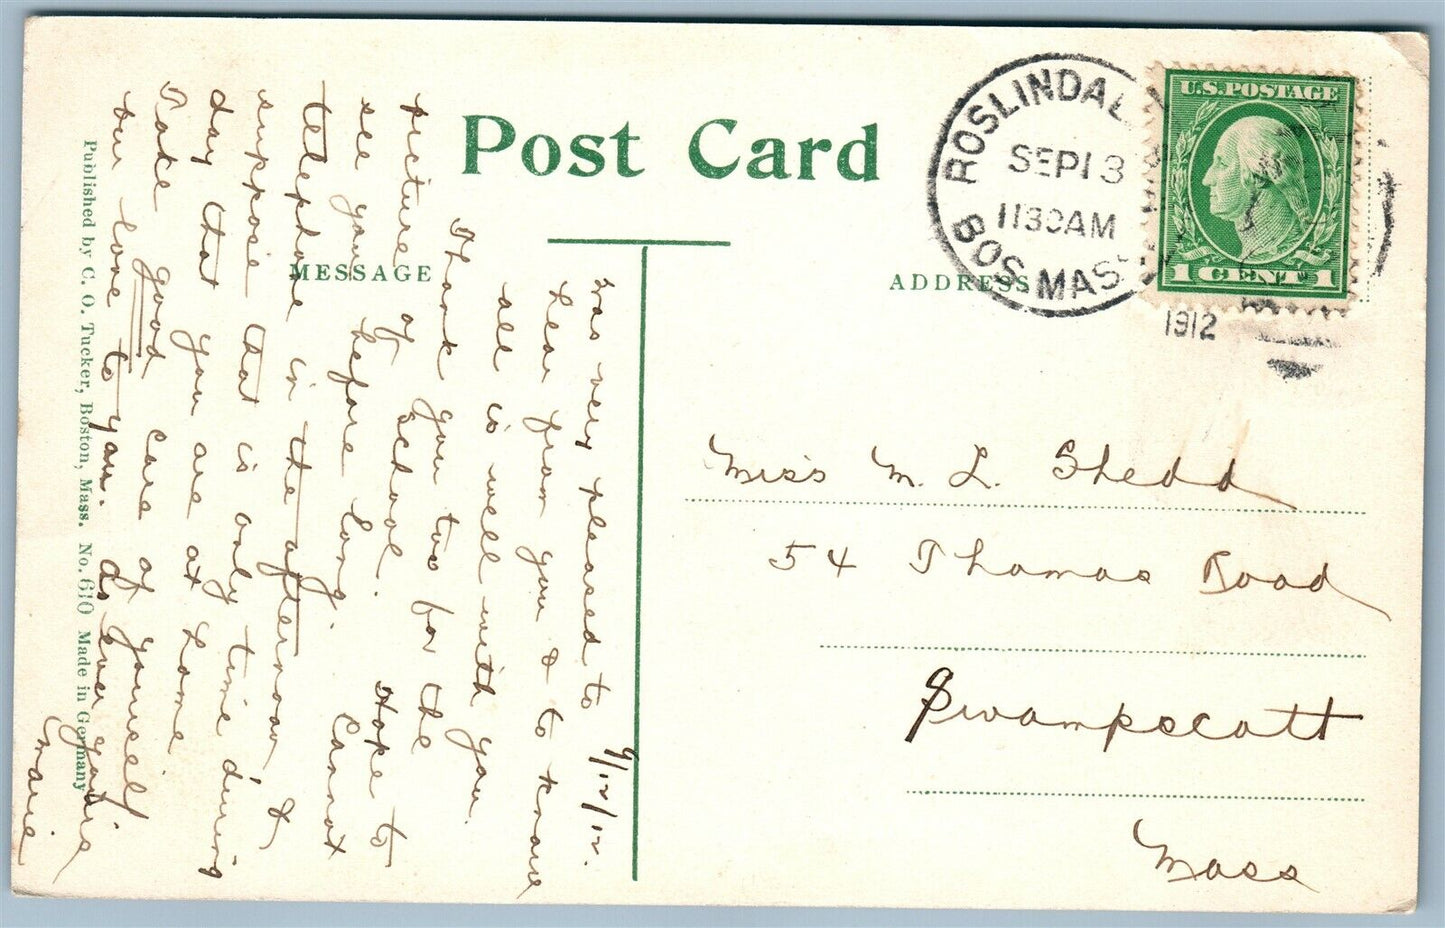 Post Card
MESSAGE
ADDRESS
ROSLINDAL
SEP 13
1130AM
BOS. MASS.
1912
U.S.POSTAGE
1 CENT 1
Miss M. L. Shedd
54 Thomas Road
Swampscott
Mass
9/12/12.
was very pleased to
hear from you & to know
all is well with you.
Thank you too for the
picture of school. Hope to
see you before long. Cannot
telephone in the afternoon, &
suppose that is only time during
day that you are at home
Take good care of yourself
our love to you. As ever yours
Marie
Published by C. O. Tucker, Boston, Mass. No. 610 Made in Germany